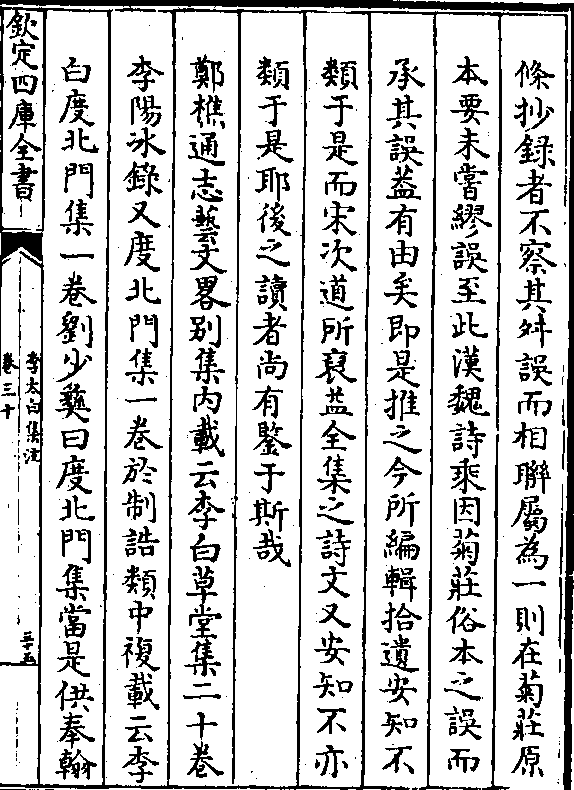 條抄錄者不察其舛誤而相聯屬為一則在菊莊原
本要未嘗繆誤至此漢魏詩乘因菊莊俗本之誤而
承其誤葢有由矣即是推之今所編輯拾遺安知不
類于是而宋次道所裒益全集之詩文又安知不亦
類于是耶後之讀者尚有鑒于斯哉
鄭樵通志藝文畧别集內載云李白草堂集二十卷
李陽冰錄又度北門集一卷於制誥類中複載云李
白度北門集一卷劉少彝曰度北門集當是供奉翰
欽定四庫全書
李太白集注
卷三十
三十五